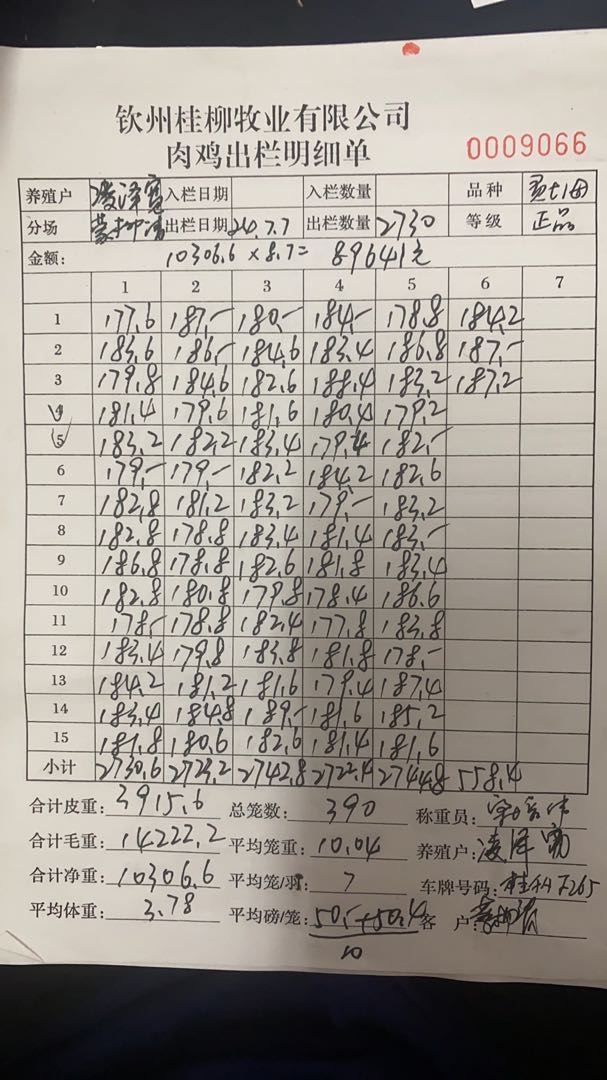 钦州桂柳牧业有限公司
肉鸡出栏明细单
0009066
养殖户 凌泽宽 入栏日期 入栏数量 品种
分场 出栏日期 24.7.7 出栏数量 2730 等级 正品
金额: 10306.6×8.7= 89641元
1 2 3 4 5 6 7
1 177.6 187.- 180.- 184.- 178.8 184.2
2 183.6 186.- 184.6 183.4 186.8 187.-
3 179.8 184.6 182.6 188.4 183.2 187.2
4 181.4 179.6 181.6 180.4 179.2
5 183.2 182.2 183.4 179.4 182.-
6 179.- 179.- 182.2 184.2 182.6
7 182.8 181.2 183.2 179.- 183.2
8 182.8 178.8 183.4 181.4 183.-
9 186.8 178.8 182.6 181.8 183.4
10 182.8 180.8 179.8 178.4 186.6
11 178.- 178.8 182.4 177.8 183.8
12 183.4 179.8 183.8 181.8 178.-
13 184.2 181.2 181.6 179.4 187.4
14 183.4 184.8 189.- 181.6 185.2
15 181.8 180.6 182.6 181.4 181.6
小计 2730.6 2723.2 2742.8 2722.4 2744.8 558.4
合计皮重: 3915.6 总笼数: 390 称重员:
合计毛重: 14222.2 平均笼重: 10.04 养殖户: 凌泽宽
合计净重: 10306.6 平均笼/羽: 7 车牌号码:
平均体重: 3.78 平均磅/笼: 50.-+50.4 客 户:
10